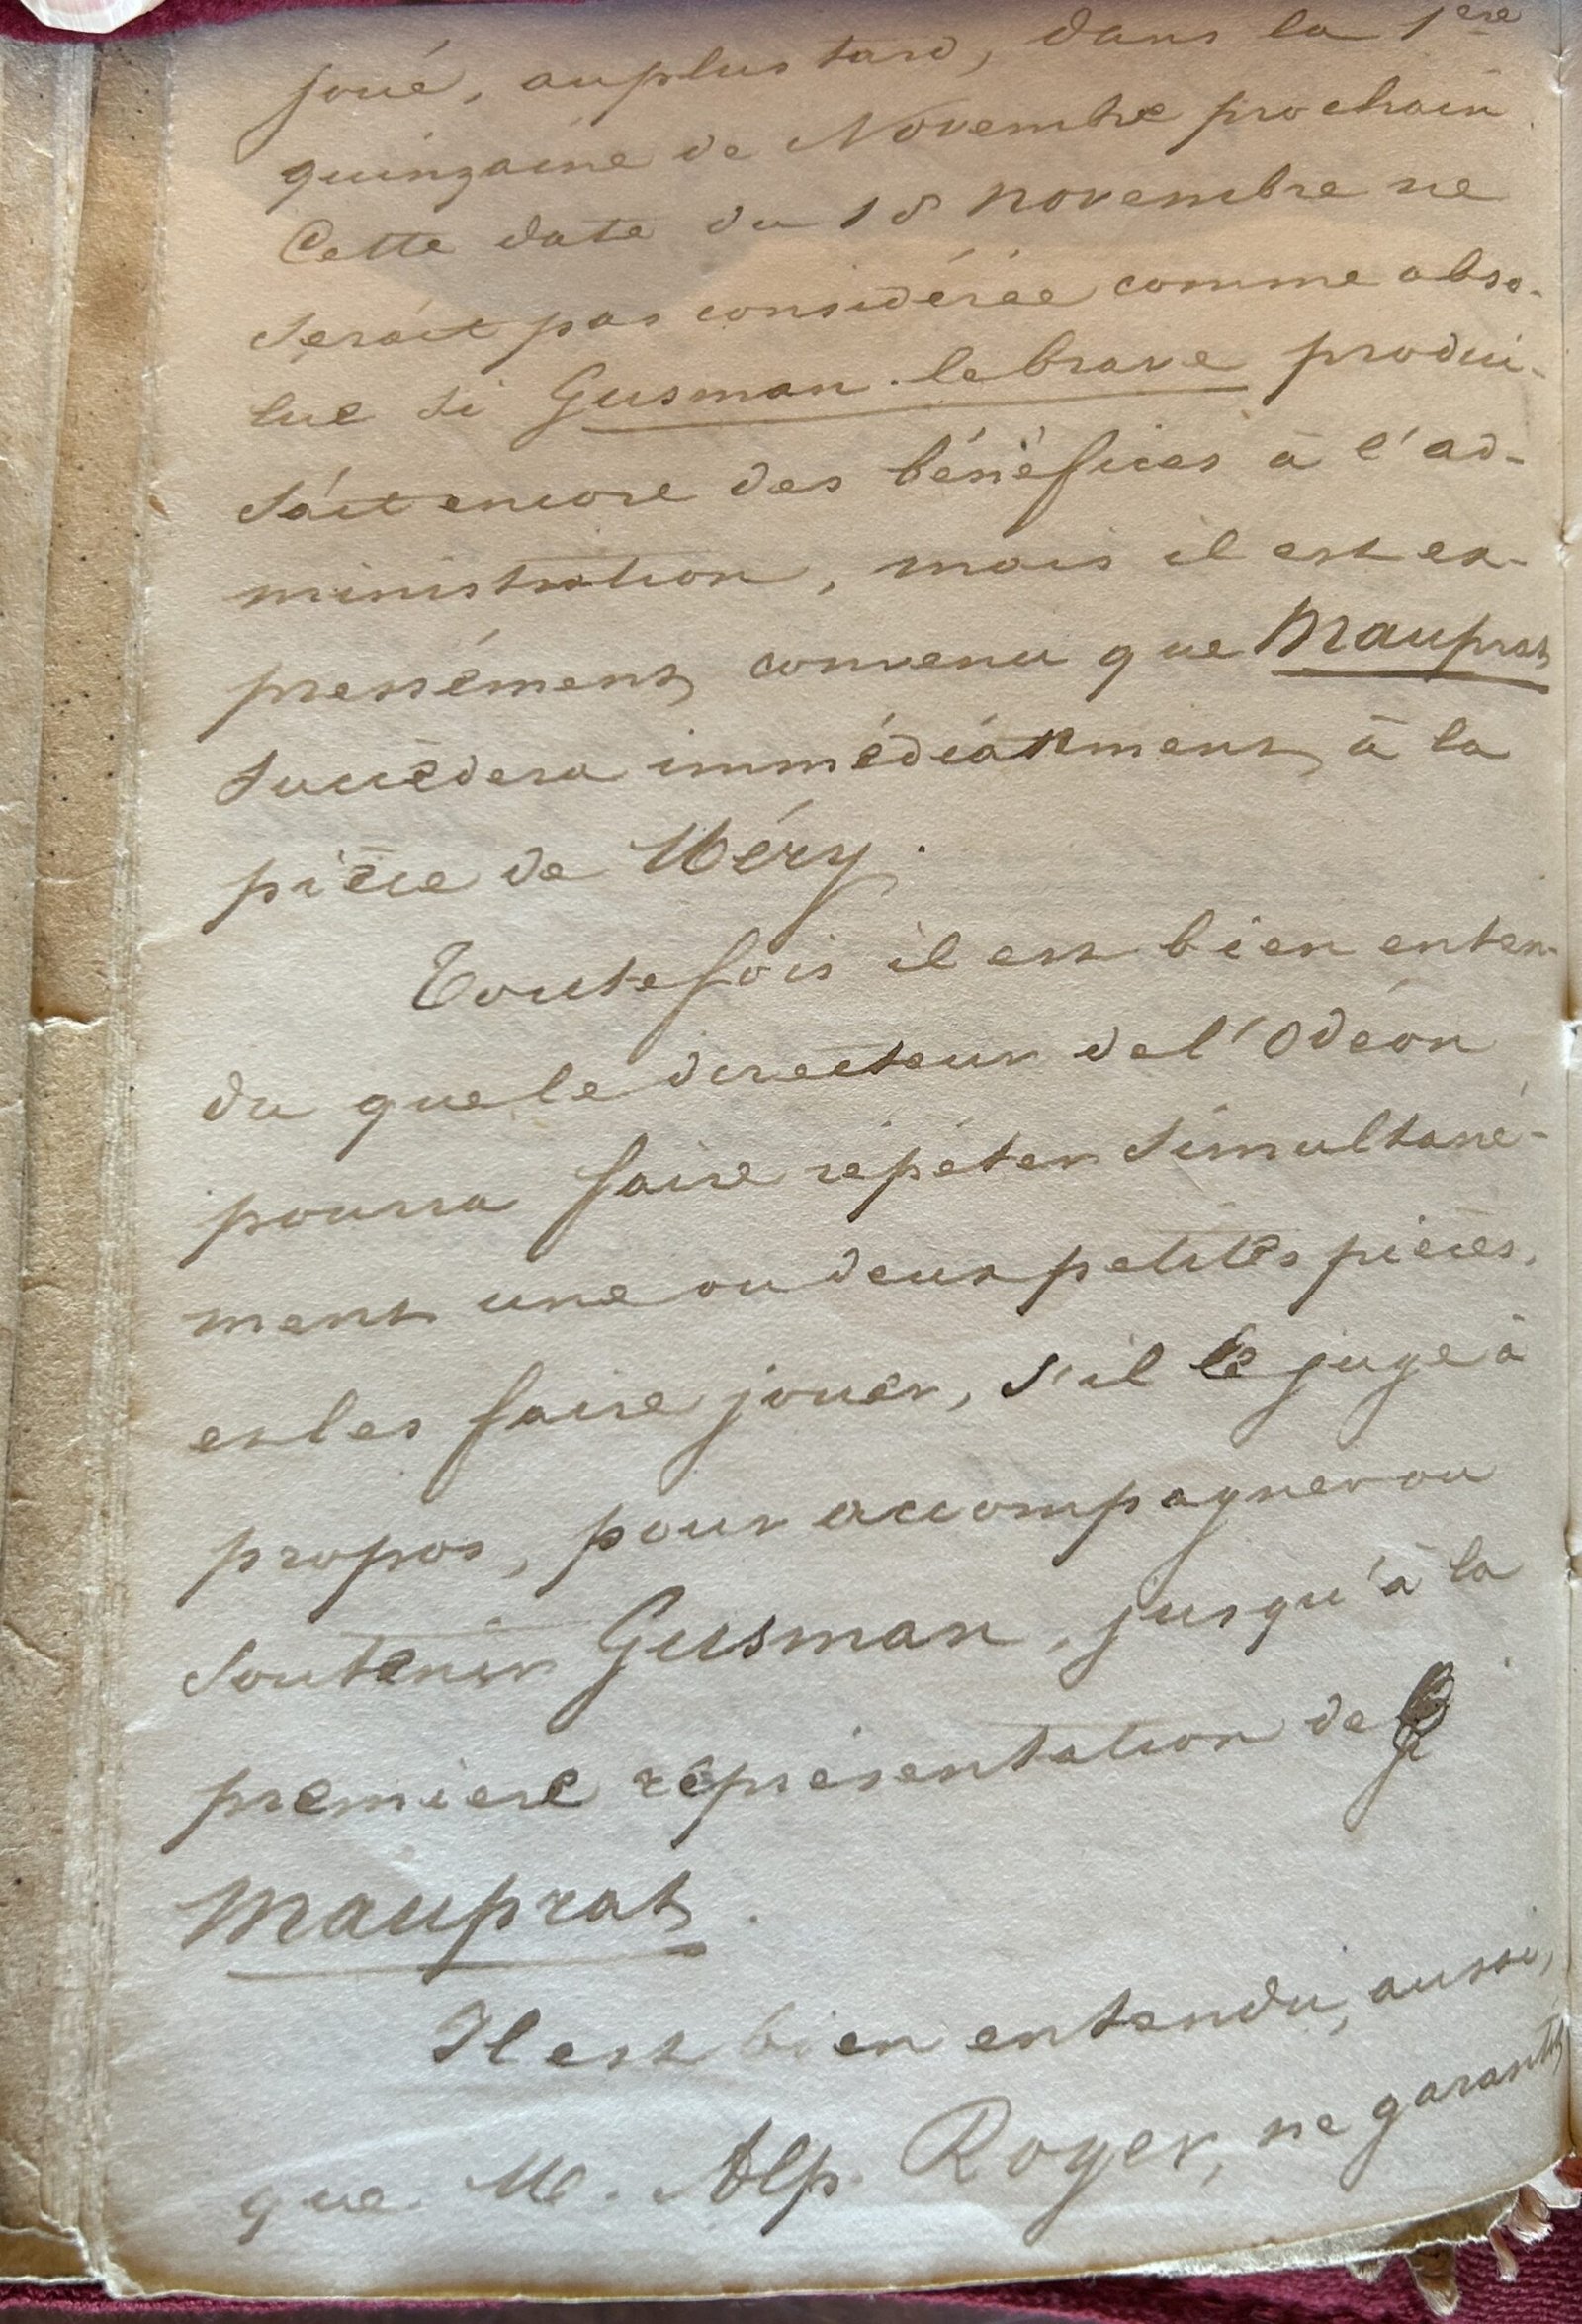 joué, au plus tard, dans la 1ere
quinzaine de Novembre prochain.
Cette date du 15 novembre ne
serait pas considérée comme abso-
lue si Gusman le brave produi-
sait encore des bénéfices à l'ad-
ministration, mais il est ex-
pressément convenu que Mauprat
succèdera immédiatement à la
pièce de Méry.
Toutefois il est bien enten-
du que le directeur de l'Odéon
pourra faire répéter simultané-
ment une ou deux petites pièces,
et les faire jouer, s'il le juge à
propos, pour accompagner ou
soutenir Gusman, jusqu'à la
première représentation de
Mauprat.
Il est bien entendu, aussi,
que M. Alp. Royer, ne garantit